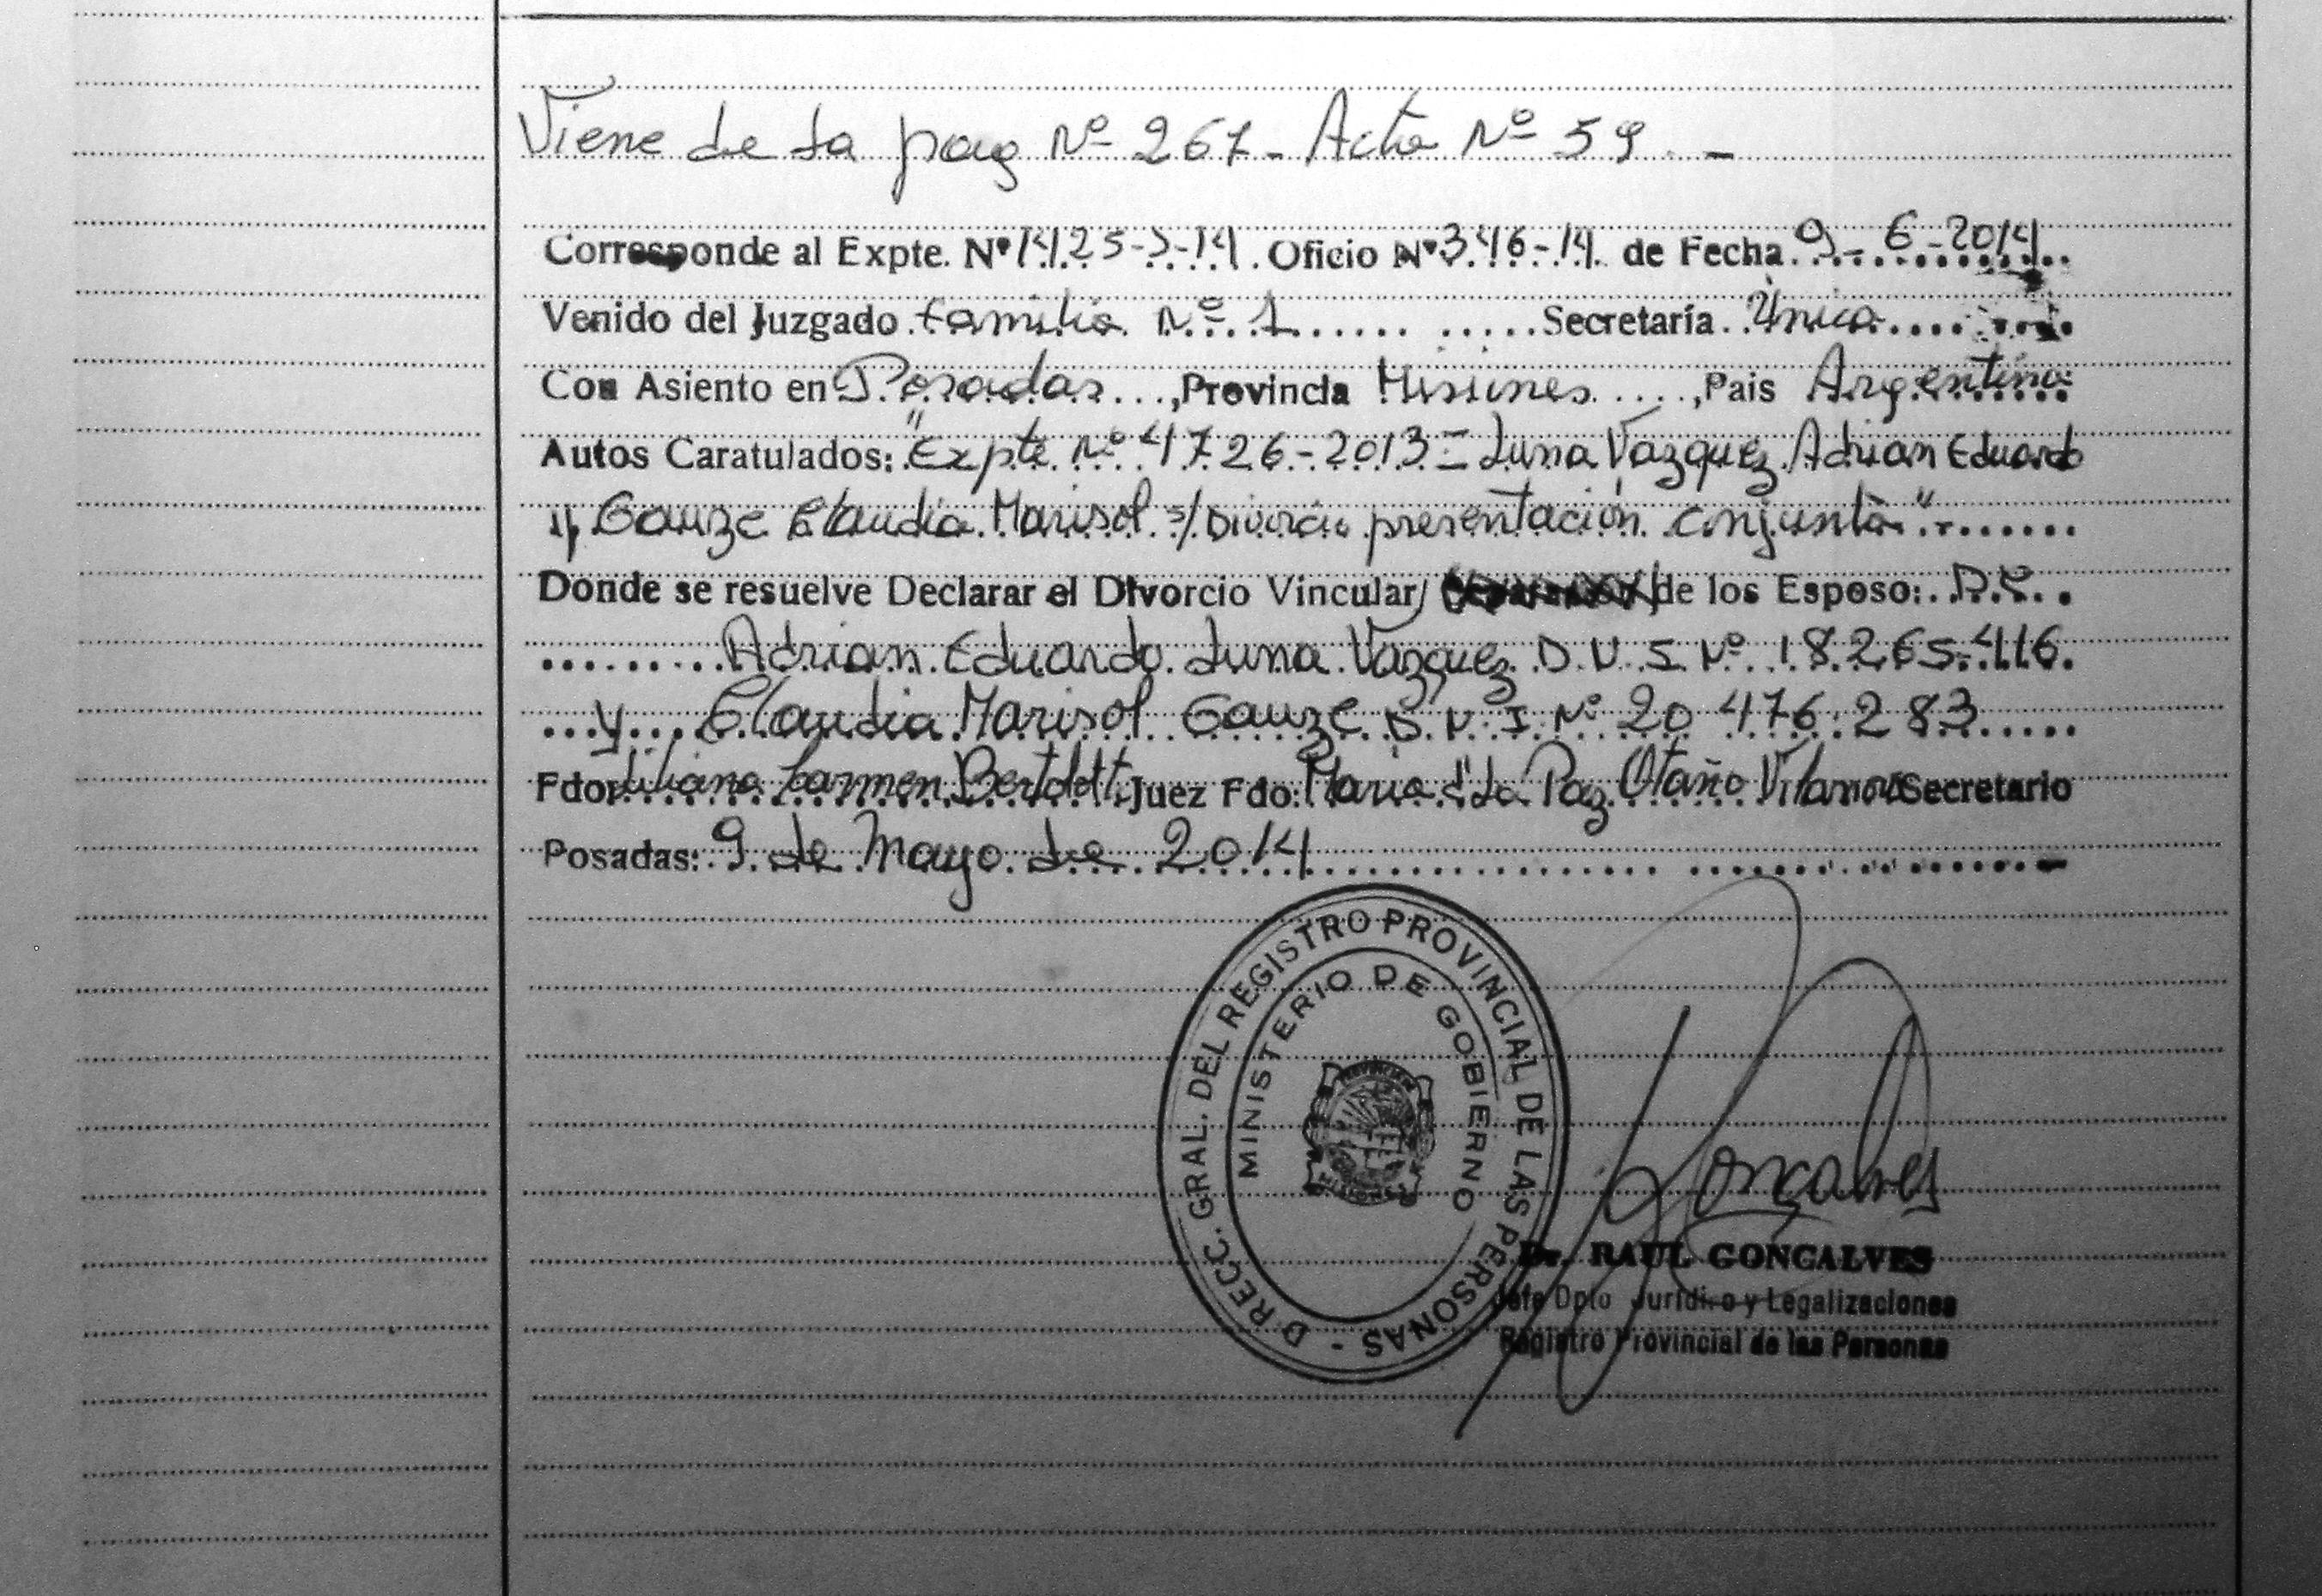 Viene de la pag Nº 267 - Acta Nº 59 -
Corresponde al Expte. Nº 1425-J-14. Oficio Nº 346-14. de Fecha 9-6-2014
Venido del Juzgado Familia Nº 1 Secretaría Única
Con Asiento en Posadas, Provincia Misiones, Pais Argentina
Autos Caratulados: "Expte Nº 4726-2013 - Luna Vazquez Adrian Eduardo
y Gauze Claudia Marisol s/ Divorcio presentación conjunta"
Donde se resuelve Declarar el Divorcio Vincular/ de los Esposo:
Adrian Eduardo Luna Vazquez D.N.I. Nº 18.265.416.
y Claudia Marisol Gauze D.N.I Nº 20 476.283
Fdo: Liliana Carmen Bertoldt. Juez Fdo: Maria d' La Paz Otaño Vilanova Secretario
Posadas: 9 de Mayo de 2014
DIRECC. GRAL. DEL REGISTRO PROVINCIAL DE LAS PERSONAS -
MINISTERIO DE GOBIERNO
MISIONES
Goncalves
Dr. RAUL GONCALVES
Jefe Dpto Jurídico y Legalizaciones
Registro Provincial de las Personas